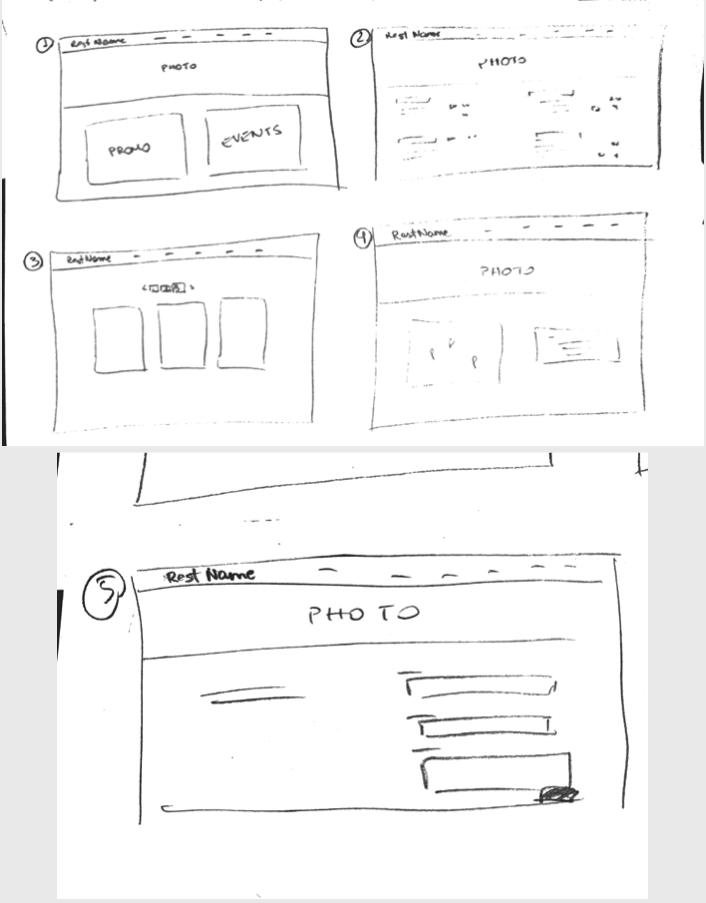 1 Rest Name
PHOTO
PROMO
EVENTS
2 Rest Name
PHOTO
3 Rest Name
4 Rest Name
PHOTO
P P P
5 Rest Name
PHOTO